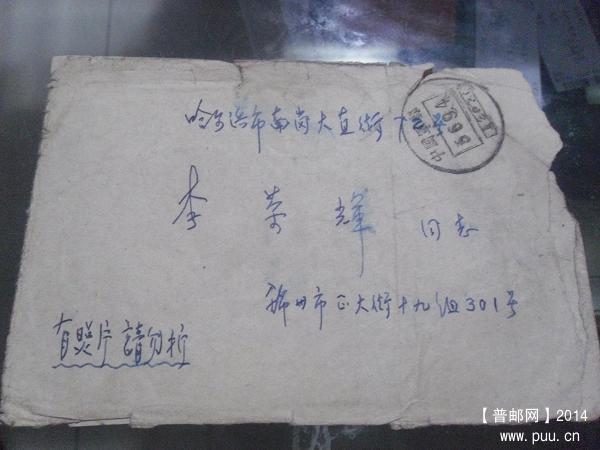 哈尔滨市南岗大直街十二号
56.9.4
李荣辉 同志
锦州市正大街十九组301号
有照片請勿折
【普邮网】2014
www.puu.cn